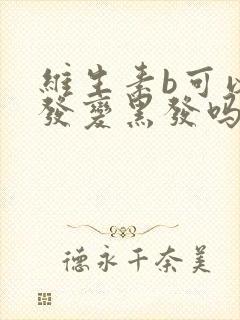 維生素b可以
發變黑發吗
德永千奈美